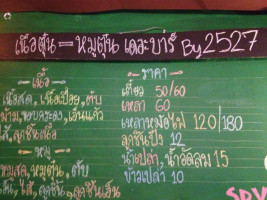 เนื้อตุ๋น - หมูตุ๋น เดอะบาร์ By 2527
- เนื้อ -
เนื้อสด, เนื้อเปื่อย, ตับ
เอ็นแก้ว
ลูกชิ้นเนื้อ
- หมู -
หมูสด, หมูตุ๋น, ตับ
ไส้, ลูกชิ้น, ลูกชิ้นเอ็น
- ราคา -
เตี๋ยว 50/60
เหลา 60
เหลาหม้อไฟ 120/180
ลูกชิ้นปิ้ง 12
น้ำเปล่า, น้ำอัดลม 15
ข้าวเปล่า 10